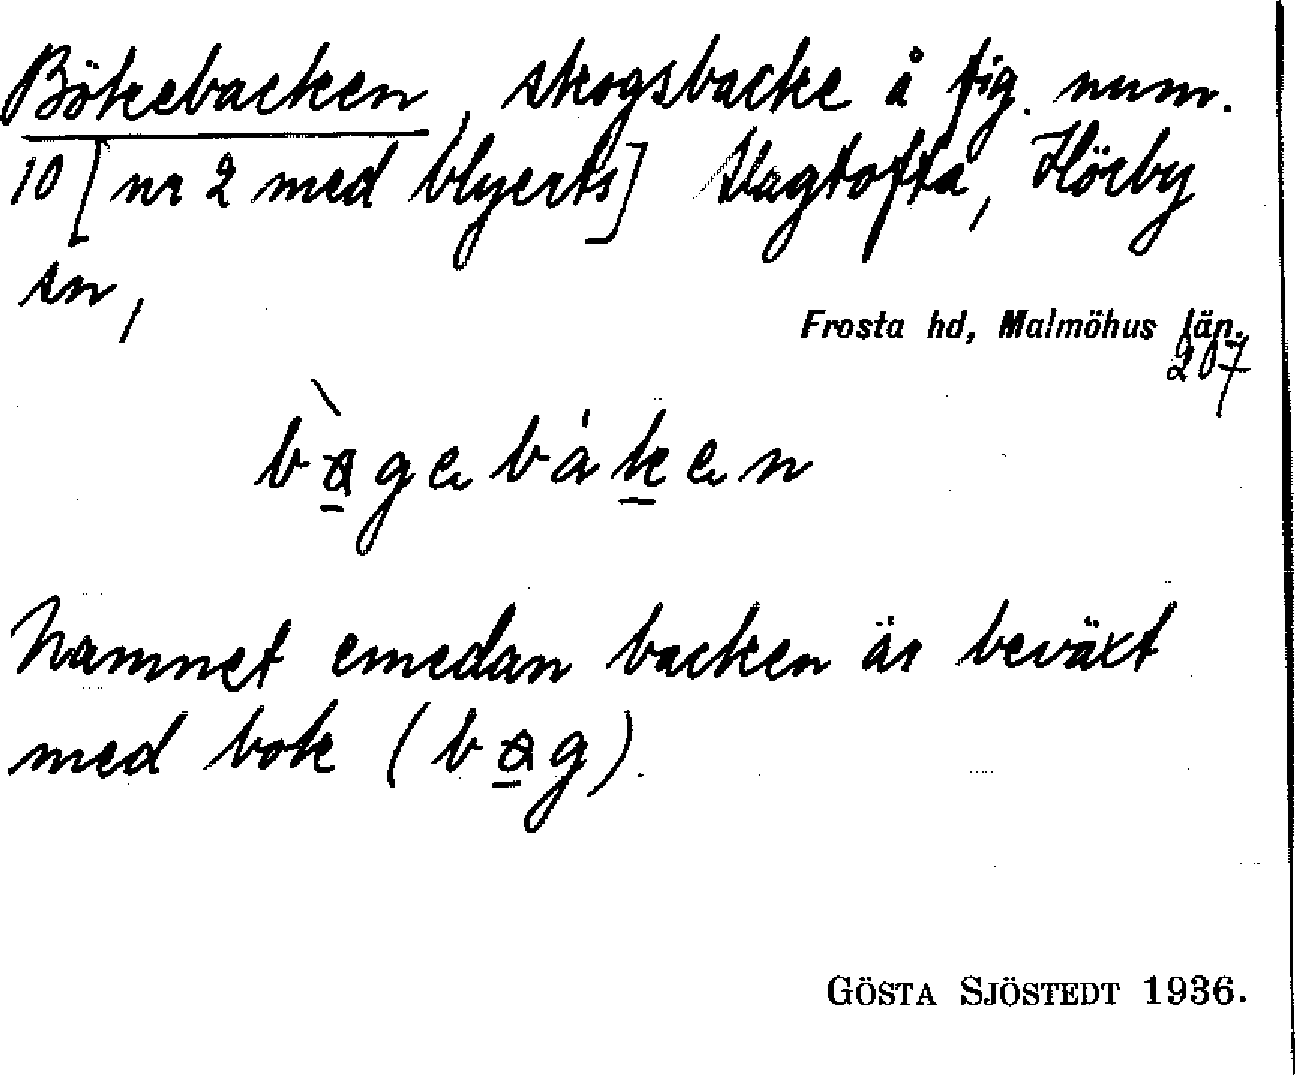 Bökebacken, skogsbacke å fig. num.
10 [nr 2 med blyerts] Slagtofta, Hörby
sn,
Frosta hd, Malmöhus län.
207
Namnet emedan backen är beväxt
med bok
GÖSTA SJÖSTEDT 1936.